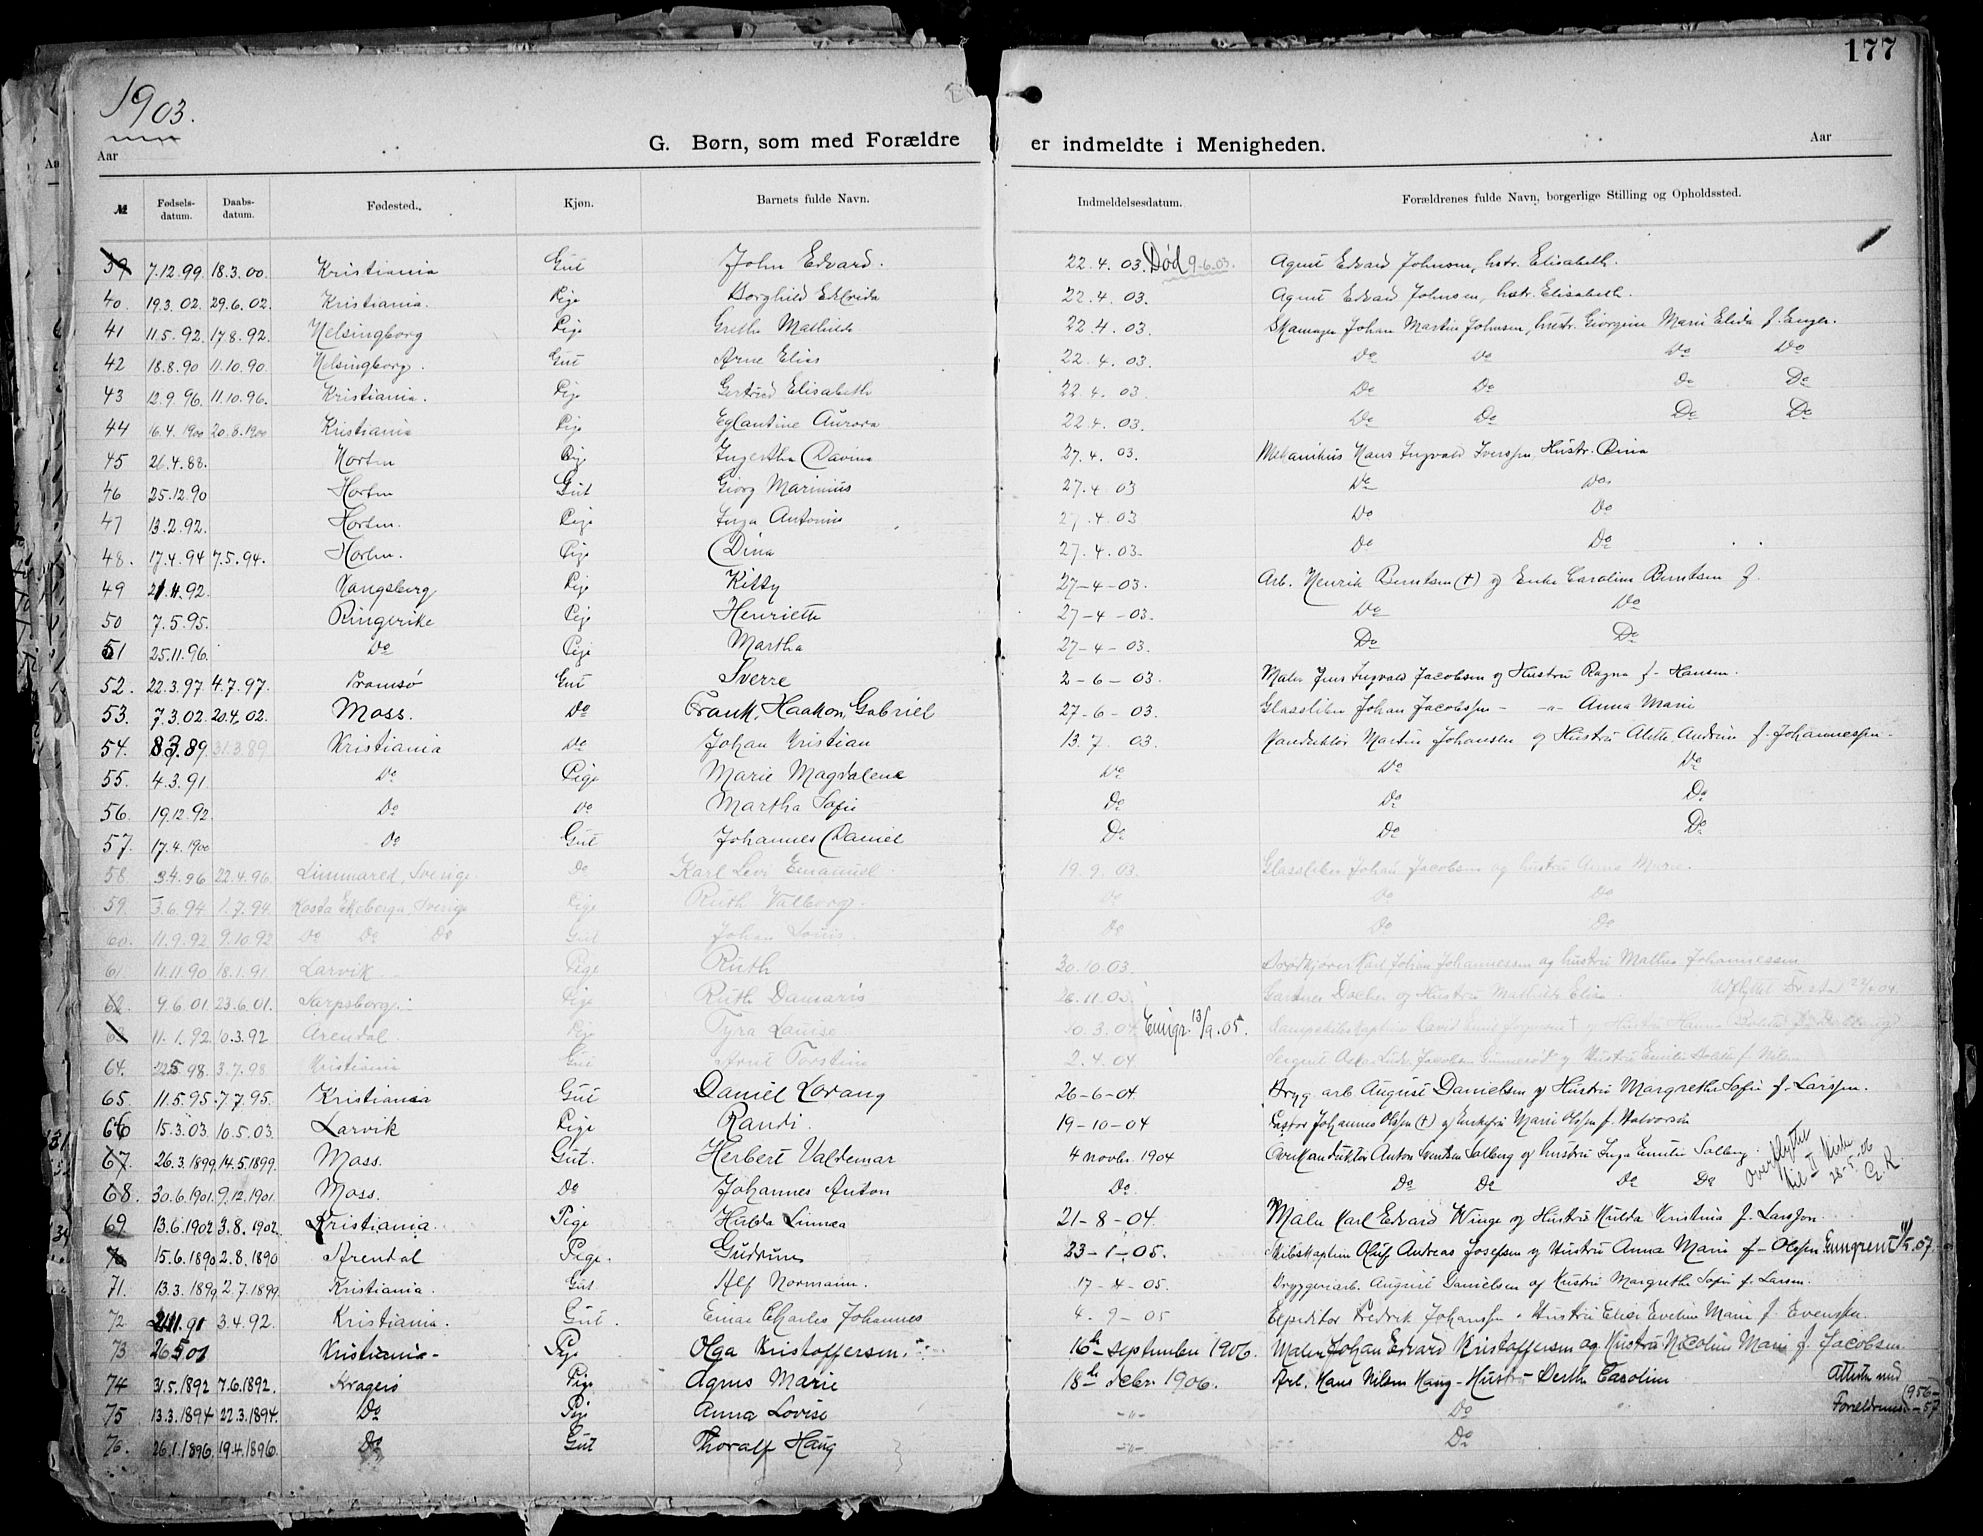 177
1903.
G. Børn, som med Forældre er indmeldte i Menigheden.
Aar Aar
№ Fødselsdatum. Daabsdatum. Fødested. Kjøn. Barnets fulde Navn. Indmeldelsesdatum. Forældrenes fulde Navn, borgerlige Stilling og Opholdssted.
39 7.12.99. 18.3.00. Kristiania Gut John Edvard. 22.4.03. Død 9-6.03. Agent Edvard Johnsen, hstr. Elisabeth.
40. 19.3.02. 29.6.02. Kristiania. Pige Borghild Elfrida 22.4.03. Agent Edvard Johnsen, hstr. Elisabeth.
41 11.5.92. 17.8.92. Helsingborg Pige Grethe Mathilde 22.4.03. Johan Martin Johnsen, hustr. Georgine Marie Elida f. Enger.
42 18.8.90 11.10.90. Helsingborg. Gut Arne Elias 22.4.03. Do Do Do Do
43 12.9.96. 11.10.96. Kristiania. Pige Gertrud Elisabeth 22.4.03. Do Do Do Do
44 16.4.1900 20.8.1900 Kristiania Pige Eglantine Aurora 22.4.03. Do Do Do Do
45 26.4.88. Horten Pige Ingertha Davina 27.4.03. Mekanikus Hans Ingvald Iverssen Hustr. Dina
46 25.12.90 Horten Gut Georg Marinius 27.4.03 Do Do
47 13.2.92. Horten. Pige Inga Antonie 27.4.03 Do Do
48. 17.4.94 7.5.94. Horten. Pige Dina 27.4.03. Do Do
49 21.11.92. Kongsberg Pige Kitty 27-4-03. Arb. Henrik Berntsen (†) og Enke Caroline Berntsen f.
50 7.5.95. Ringerike Pige Henriette 27-4-03. Do Do
51 25.11.96. Do Pige Martha 27-4-03. Do Do
52. 22.3.97. 4.7.97. Tromsø Gut Sverre 2-6-03. Maler Jens Ingvald Jacobsen og Hustru Ragna f. Hansen.
53. 7.3.02. 20.4.02. Moss. Do Frank, Haakon, Gabriel 27-6-03. Glassliber Johan Jacobssen - -"- Anna Marie
54. 8.3.89. 31.3.89. Kristiania Do Johan Kristian 13.7.03. Konduktør Martin Johansen og Hustru Alette Andrine f. Johannessen.
55. 4.3.91 Do Pige Marie Magdalene Do Do Do
56. 19.12.92. Do Do Martha Sofie Do Do Do
57. 17.4.1900 Do Gut Johannes Daniel Do Do Do
58. 3.4.96 22.4.96. Limmared, Sverige. Do Karl Levi Emanuel 19.9.03. Glassliber Johan Jacobsen og hustru Anna Marie.
59. 3.6.94 1.7.94. Kosta Ekeberga, Sverige Pige Ruth Valborg Do Do Do
60. 11.9.92 9.10.92 Do Do Do Gut Johan Louis. Do Do Do
61 11.11.90 18.1.91. Larvik Pige Ruth 30.10.03. Karl Johan Johannessen og hustru Mathea Johannessen
62. 4.6.01. 23.6.01. Sarpsborg. Pige Ruth Damaris 26.11.03. Gartner og Hustru Mathilde Elise.
11.1.92. 10.3.92 Arendal. Pige Tyra Louise. 10.3.04 Emigr. 13/9.05.
64. 22.5.98. 3.7.98 Kristiania Gut Arne Torstein 2.4.04
65. 11.5.95. 7.7.95. Kristiania Gut Daniel Lorang 26-6-04. Brygg. arb. August Danielsen og Hustru Margrethe Sofie f. Larssen.
66 15.3.03. 10.5.03. Larvik Pige Randi. 19-10-04 Pastor Johannes Olssen (†) og Enkefru Marie Olssen f. Halvorsen
67. 26.3.1899. 14.5.1899. Moss. Gut. Herbert Valdemar 4 novbr. 1904 Overkonduktør Anton Solberg og hustru Inga Emilie Solberg.
68. 30.6.1901. 9.12.1901. Moss. Do Johannes Anton Do. Do Do Do Do
Overflyttet til II Kirke 28-5-06 G. R.
69 13.6.1902 3.8.1902. Kristiania. Pige Hulda Linnea 21-8-04. Maler Karl Edvard Winge og Hustru Hulda Kristina f. Larsson.
70 15.6.1890 2.8.1890 Arendal Pige. Gudrun 23-1-05. Skibskaptein Oluf Andreas Josefsen og Hustru Anna Marie f. Olssen.
71. 13.3.1899 2.7.1899 Kristiania. Gut Alf Normann. 17-4-05. Bryggeriarb. August Danielsen og Hustru Margrethe Sofie f. Larsen.
72 2.11.91 3.4.92. Kristiania. Gut. Einar Charles Johannes 4-9-05 Expeditør Fredrik Johanssen. Hustru Elise Eveline Marie f. Evenssen.
73 26.5.01 Kristiania- Pige Olga Kristoffersen. 16de september 1906. Maler Johan Edvard Kristoffersen og Hustru Nicoline Marie f. Jacobsen.
74 31.5.1892 7.6.1892. Kragerø Pige Agnes Marie 18de debr. 1906. Arb. Hans Nilsen Haug - Hustru Berthe Caroline
75 13.3.1894 22.3.1894. Do Pige Anna Lovise -"- Do
76. 26.1.1896. 19.4.1896. Do Gut Thoralf Haug -"- Do
Attester med Forældrenes 1956-57